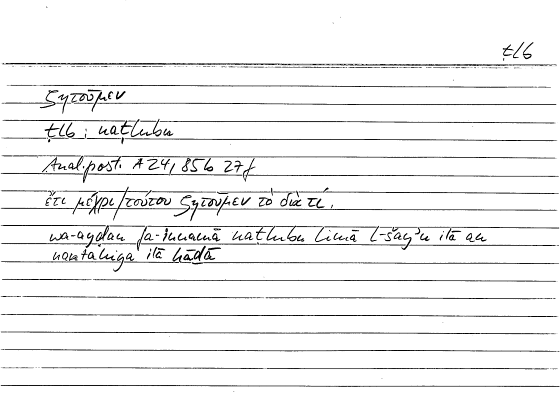 ṭlb
ζητοῦμεν
ṭlb ; naṭlubu
Anal. post. A 24, 85b 27f
ἔτι μέχρι τούτου ζητοῦμεν τὸ διὰ τί,
wa-ayḍan fa-innamā naṭlubu limā l-šayʾu ilā an
nantahiya ilā hāḏā